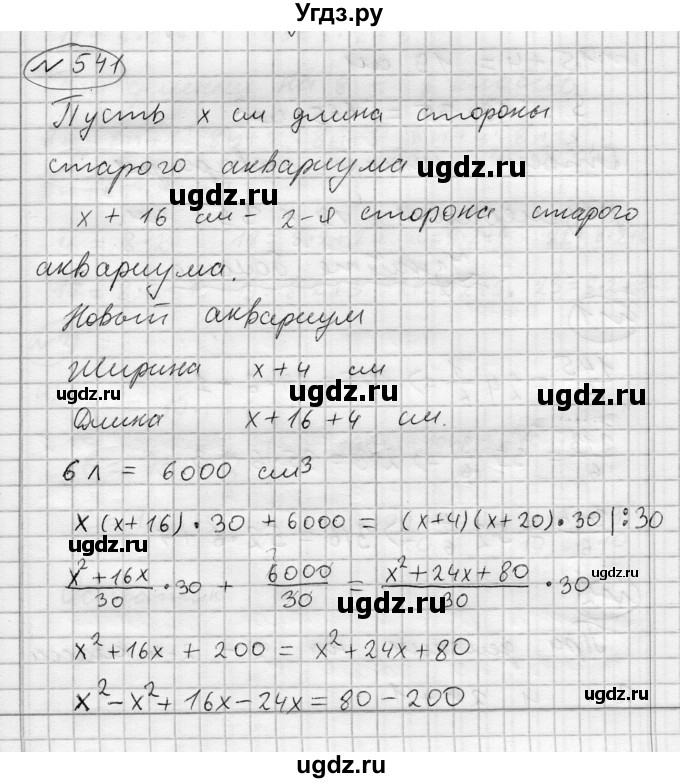 Угдз.ру
№ 541
Пусть x см длина стороны
старого аквариума
ugdz.ru
x + 16 см - 2-я сторона старого
аквариума.
ugdz.ru
Новый аквариум
Ширина x+4 см
ugdz.ru ugdz.ru
Длина x+16+4 см.
6 л = 6000 см³
x(x+16)·30 + 6000 = (x+4)(x+20)·30 |:30
ugdz.ru
(x²+16x)/30 ·30 + 6000/30 = (x²+24x+80)/30 ·30
ugdz.ru ugdz.ru
x²+16x + 200 = x²+24x+80
ugdz.ru ugdz.ru
x²-x²+16x-24x=80-200
ugdz.ru